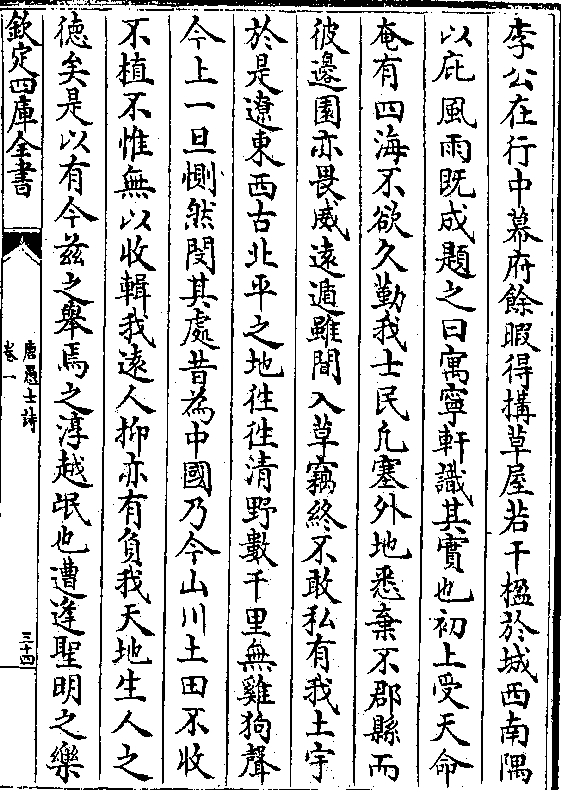 李公在行中幕府餘暇得搆草屋若干楹於城西南隅
以庇風雨既成題之曰寓寧軒識其實也初上受天命
奄有四海不欲久勤我士民凢塞外地悉棄不郡縣而
彼邊圉亦畏威遠遁雖間入草竊終不敢私有我土宇
於是遼東西古北平之地徃徃清野數千里無雞狗聲
今上一旦惻然閔其處昔為中國乃今山川土田不收
不植不惟無以收輯我遠人抑亦有負我天地生人之
徳矣是以有今兹之舉焉之淳越氓也遭逢聖明之樂
欽定四庫全書
唐愚士詩
卷一
三十四